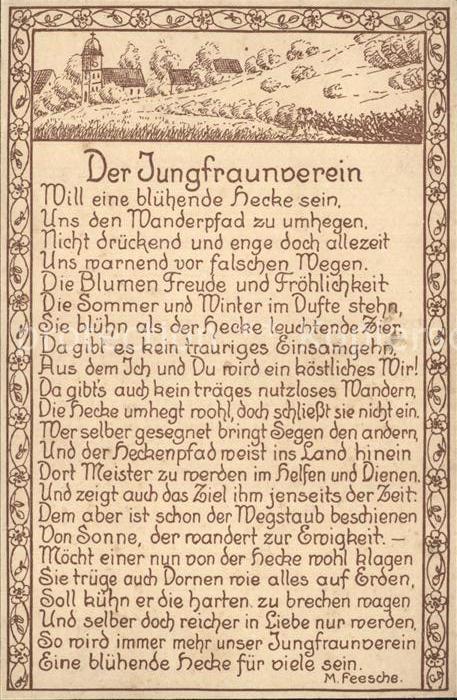 Der Jungfraunverein
Will eine blühende Hecke sein,
Uns den Wanderpfad zu umhegen,
Nicht drückend und enge doch allezeit
Uns warnend vor falschen Wegen.
Die Blumen Freude und Fröhlichkeit
Die Sommer und Winter im Dufte stehn,
Sie blühn als der Hecke leuchtende Zier.
Da gibt es kein trauriges Einsamgehn,
Aus dem Ich und Du wird ein köstliches Wir!
Da gibts auch kein träges nutzloses Wandern,
Die Hecke umhegt wohl, doch schließt sie nicht ein.
Wer selber gesegnet bringt Segen den andern,
Und der Heckenpfad weist ins Land hinein
Dort Meister zu werden im Helfen und Dienen.
Und zeigt auch das Ziel ihm jenseits der Zeit:
Dem aber ist schon der Wegstaub beschienen
Von Sonne, der wandert zur Ewigkeit. —
Möcht einer nun von der Hecke wohl klagen
Sie trüge auch Dornen wie alles auf Erden,
Soll kühn er die harten zu brechen wagen
Und selber doch reicher in Liebe nur werden,
So wird immer mehr unser Jungfraunverein
Eine blühende Hecke für viele sein.
M. Feesche.